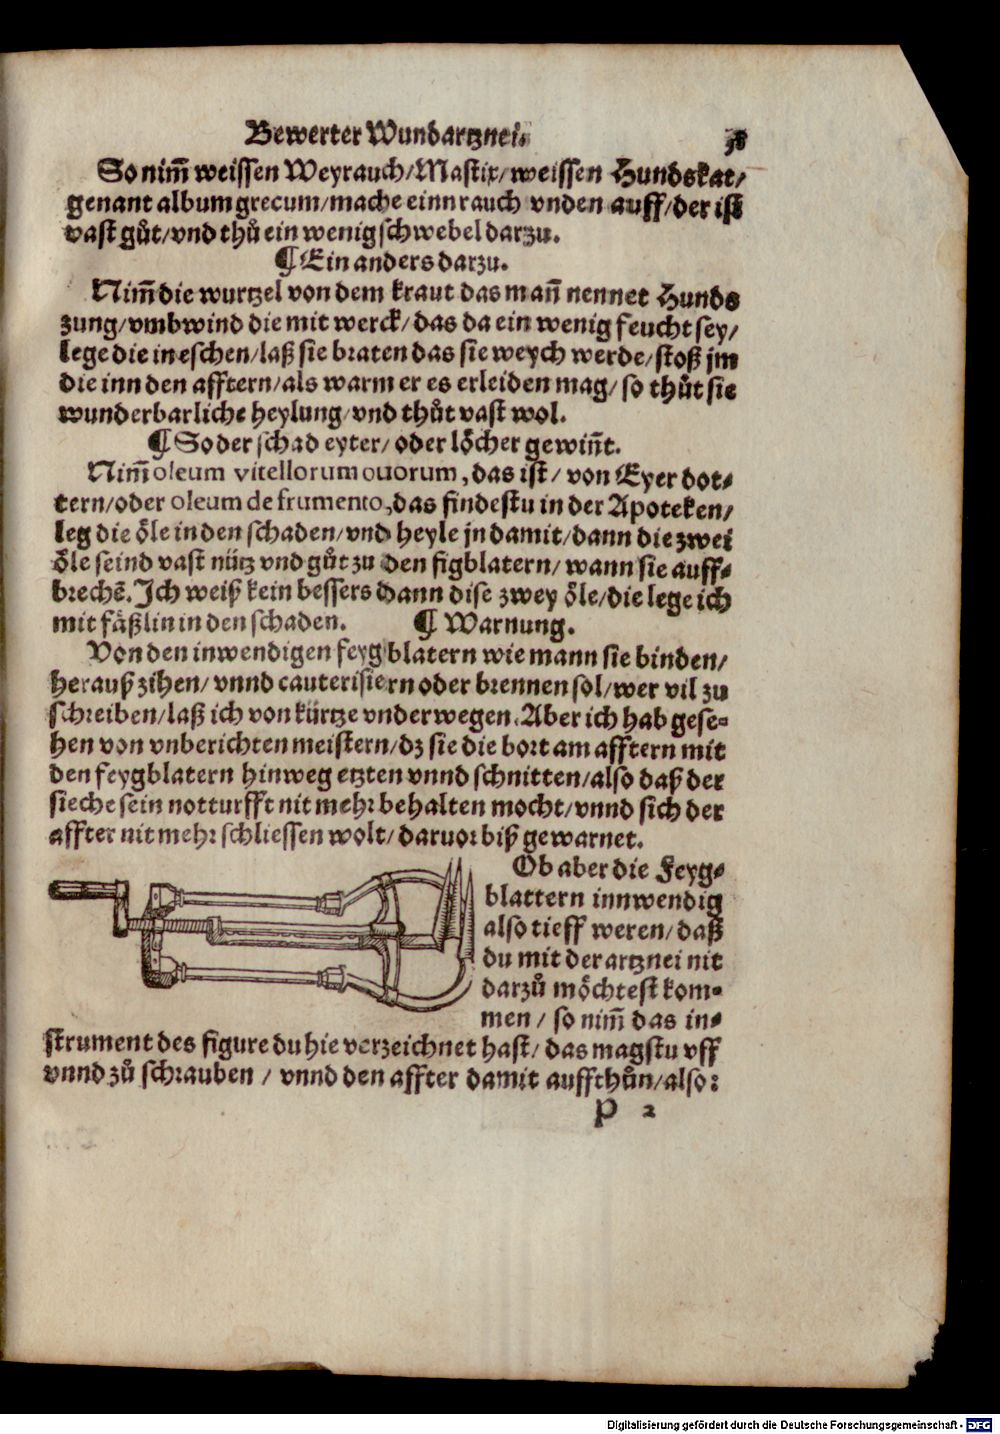 Bewerter Wundartznei.
So nim̃ weissen Weyrauch/Mastix/weissen Hundskat/
genant album grecum/mache einn rauch vnden auff/der ist
vast gůt/vnd thů ein wenig schwebel darzu.
¶ Ein anders darzu.
Nim̃ die wurtzel von dem kraut das mañ nennet Hunds
zung/vmbwind die mit werck/das da ein wenig feucht sey/
lege die in eschen/laß sie braten das sie weych werde/stoß jm
die inn den afftern/als warm er es erleiden mag/so thůt sie
wunderbarliche heylung/vnd thůt vast wol.
¶ So der schad eyter/oder löcher gewiñt.
Nim̃ oleum vitellorum ouorum, das ist/von Eyer dot⸗
tern/oder oleum de frumento, das findestu in der Apoteken/
leg die öle in den schaden/vnd heyle jn damit/dann die zwei
öle seind vast nütz vnd gůt zu den figblatern/wann sie auff⸗
brechē. Ich weiß kein bessers dann dise zwey öle/die lege ich
mit fäßlin in den schaden. ¶ Warnung.
Von den inwendigen feygblatern wie mann sie binden/
herauß zihen/vnnd cauterisiern oder brennen sol/wer vil zu
schreiben/laß ich von kürtze vnderwegen. Aber ich hab gese⸗
hen von vnberichten meistern/dz sie die bort am afftern mit
den feygblatern hinweg etzten vnnd schnitten/also daß der
sieche sein notturfft nit mehr behalten mocht/vnnd sich der
affter nit mehr schliessen wolt/daruor biß gewarnet.
Ob aber die Feyg⸗
blattern innwendig
also tieff weren/daß
du mit der artznei nit
darzů möchtest kom⸗
men/so nim̃ das in⸗
strument des figure du hie verzeichnet hast/das magstu vff
vnnd zů schrauben/vnnd den affter damit auffthůn/also:
P 2
Digitalisierung gefördert durch die Deutsche Forschungsgemeinschaft - DFG